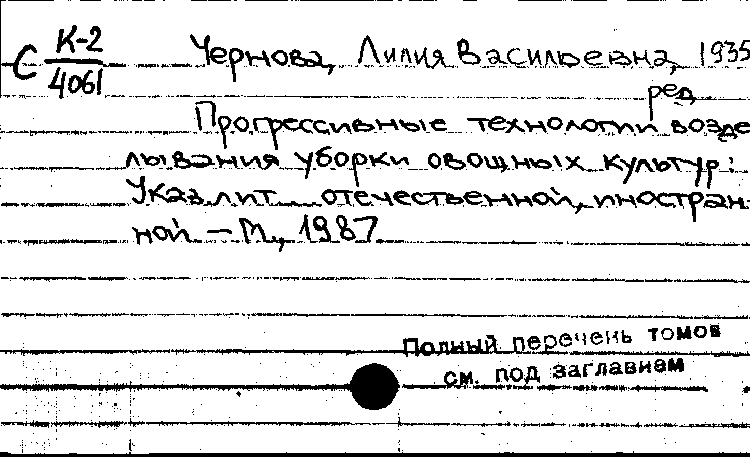 С К-2/4061
Чернова, Лилия Васильевна, 1935
ред.
Прогрессивные технологии возде
лывания уборки овощных культур:
Указ. лит. отечественной, иностран-
ной - М., 1987
Полный перечень томов
см. под заглавием